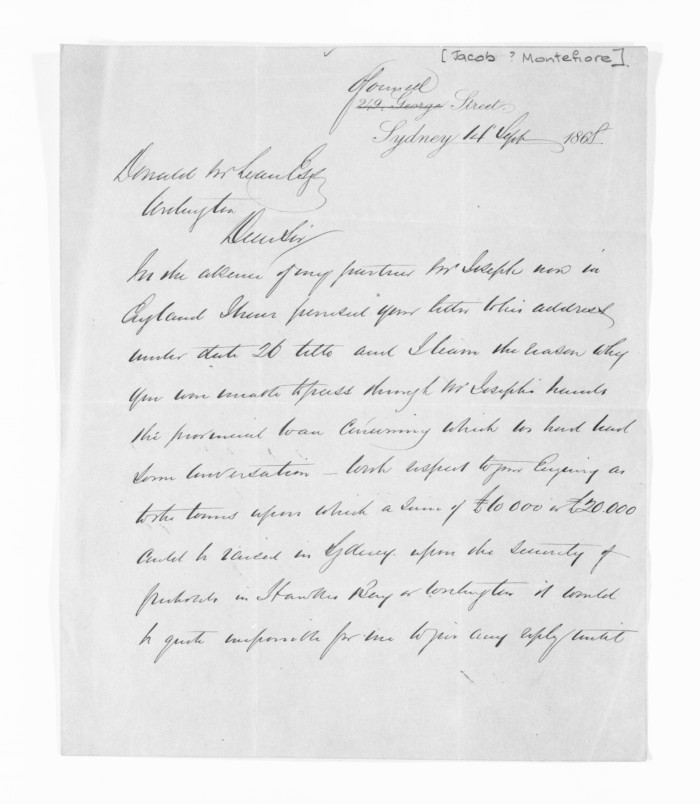 [Jacob ? Montefiore]
O'Connell
249, George Street
Sydney 14 Sept 1868.
Donald McLean Esq
Wellington
Dear Sir
In the absence of my partner Mr Joseph now in
England I have perused your letter to his address
under date 26 ulto and I learn the reason why
you were unable to pass through Mr Joseph's hands
the provincial loan concerning which we had had
some conversation — With respect to your Enquiry as
to the terms upon which a sum of £10.000 or £20.000
could be raised in Sydney upon the security of
freeholds in Hawkes Bay or Wellington it would
be quite impossible for me to give any reply until